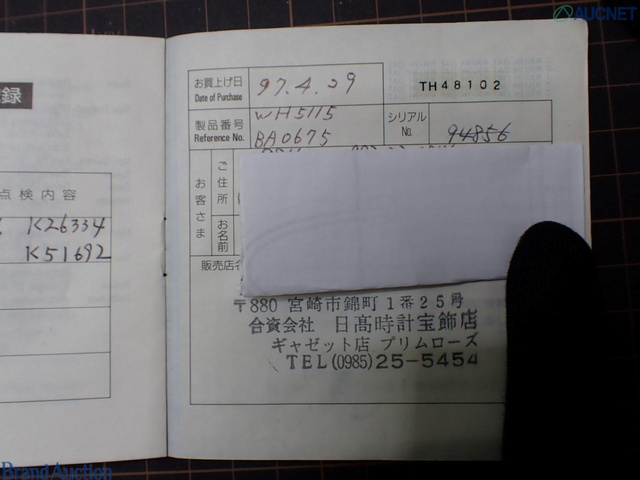 録
点検内容
K26334
K51692
お買上げ日
Date of Purchase
97.4.29
TH48102
製品番号
Reference No.
WH5115
BA0675
シリアル
No.
94856
お客さま
ご住所
お名前
販売店名
〒880 宮崎市錦町1番25号
合資会社 日髙時計宝飾店
ギャゼット店 プリムローズ
TEL(0985)25-5454
AUCNET
Brand Auction